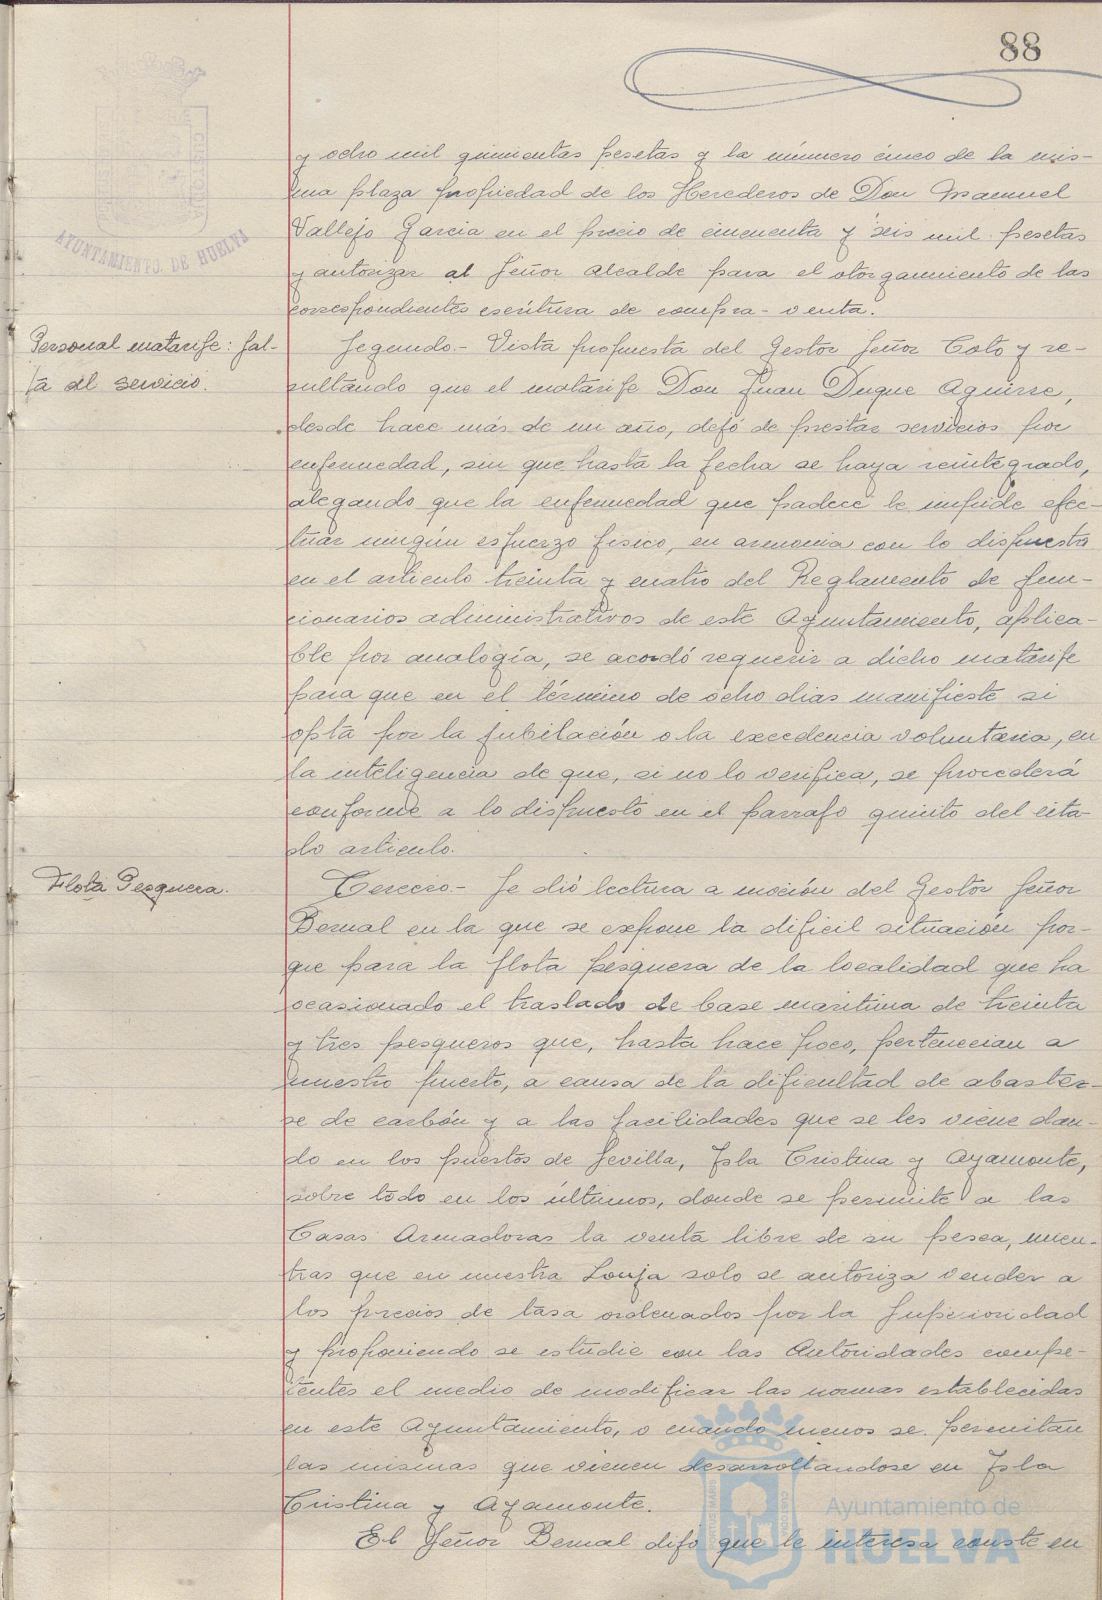 88
AYUNTAMIENTO DE HUELVA
y ocho mil quinientas pesetas y la número cinco de la mis-
ma plaza propiedad de los Herederos de Don Manuel
Vallejo García en el precio de cincuenta y seis mil pesetas
y autorizar al Señor Alcalde para el otorgamiento de las
correspondientes escritura de compra-venta.
Personal matarife: fal-
ta al servicio.
Segundo.- Vista propuesta del Gestor Señor Coto y re-
sultando que el matarife Don Juan Duque Aguirre,
desde hace más de un año, dejó de prestar servicios por
enfermedad, sin que hasta la fecha se haya reintegrado,
alegando que la enfermedad que padece le impide efec-
tuar ningún esfuerzo físico, en armonia con lo dispuesto
en el articulo treinta y cuatro del Reglamento de fun-
cionarios administrativos de este Ayuntamiento, aplica-
ble por analogía, se acordó requerir a dicho matarife
para que en el término de ocho dias manifieste si
opta por la jubilación o la excedencia voluntaria, en
la inteligencia de que, si no lo verifica, se procederá
conforme a lo dispuesto en el parrafo quinto del cita-
do articulo.
Flota Pesquera.
Tercero.- Se dió lectura a moción del Gestor Señor
Bernal en la que se expone la dificil situación por-
que para la flota pesquera de la localidad que ha
ocasionado el traslado de base maritima de treinta
y tres pesqueros que, hasta hace poco, pertenecian a
nuestro puerto, a causa de la dificultad de abaster-
se de carbón y a las facilidades que se les viene dan-
do en los puertos de Sevilla, Isla Cristina y Ayamonte,
sobre todo en los últimos, donde se permite a las
Casas Armadoras la venta libre de su pesca, mien-
tras que en nuestra Lonja solo se autoriza vender a
los precios de tasa ordenados por la Superioridad
y proponiendo se estudie con las Autoridades compe-
tentes el medio de modificar las normas establecidas
en este Ayuntamiento, o cuando menos se permitan
las mismas que vienen desarrollandose en Isla
Cristina y Ayamonte.
El Señor Bernal dijo que le interesa conste en
Ayuntamiento de
HUELVA